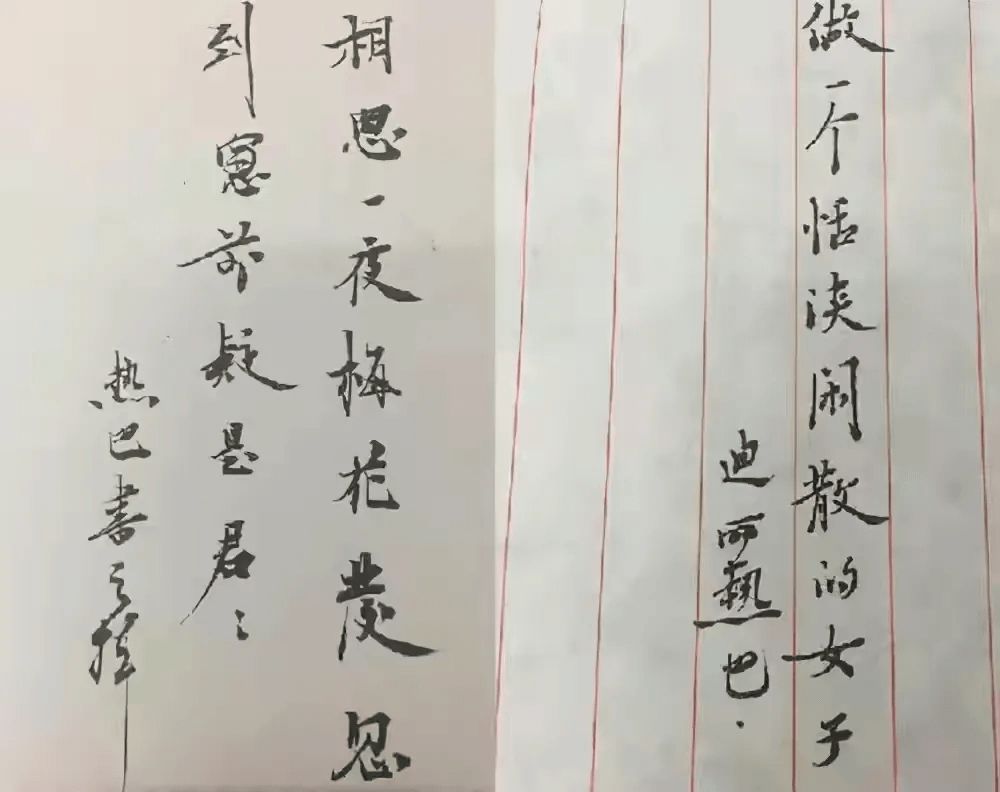 相思一夜梅花發忽
到窓前疑是君
热巴書之
做一个恬淡闲散的女子
迪丽熱巴